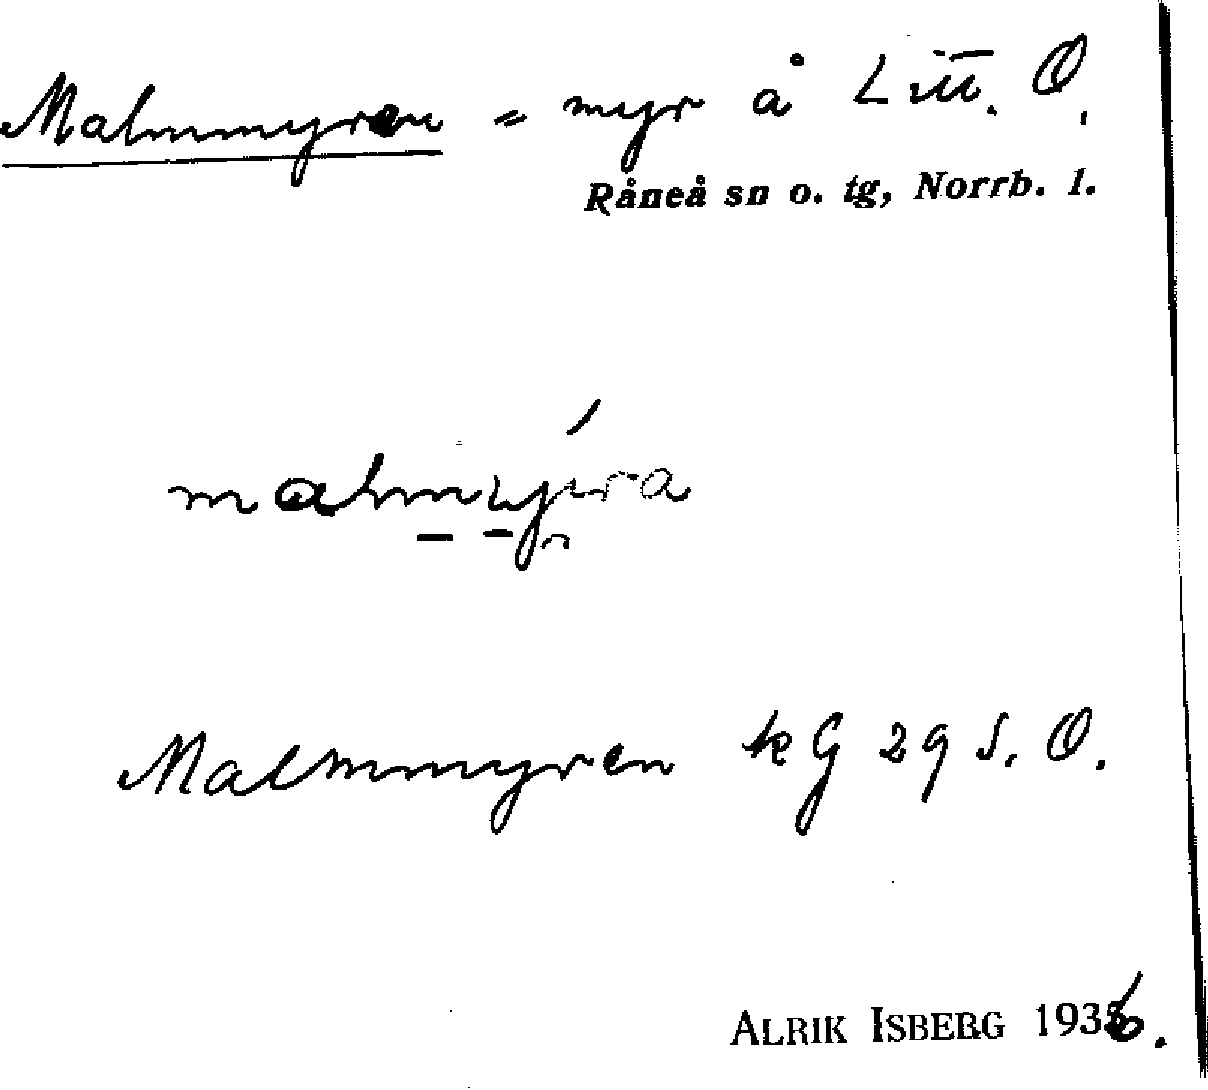 Malmmyren = myr å Litt. O.
Råneå sn o. tg, Norrb. l.
Malmmyren kG 29 S. O.
ALRIK ISBERG 1936.